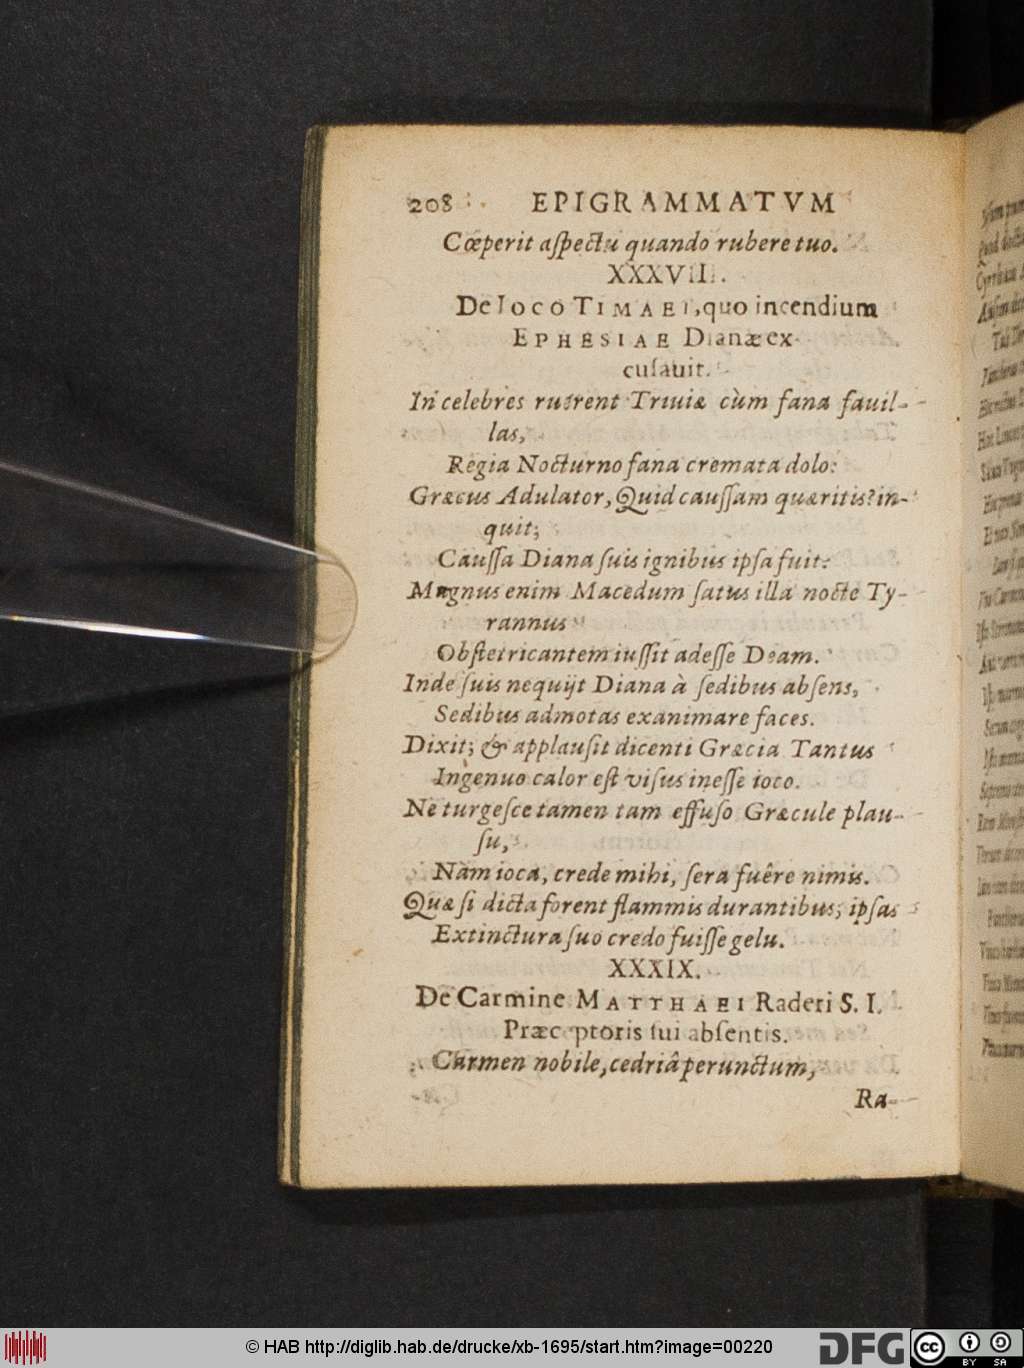 208 EPIGRAMMATVM
Cœperit aſpectu quando rubere tuo.
XXXVIII.
De Ioco TIMAEI, quo incendium
EPHESIAE Dianæ ex-
cuſavit.
In celebres ruerent Triuiæ cùm fana fauil-
las,
Regia Nocturno fana cremata dolo:
Græcus Adulator, Quid cauſſam quæritis? in-
quit;
Cauſſa Diana ſuis ignibus ipſa fuit:
Magnus enim Macedum ſatus illa nocte Ty-
rannus
Obſtetricantem iuſſit adeſſe Deam.
Inde ſuis nequijt Diana à ſedibus abſens,
Sedibus admotas exanimare faces.
Dixit; & applauſit dicenti Græcia Tantus
Ingenuo calor eſt viſus ineſſe ioco.
Ne turgeſce tamen tam effuſo Græcule plau-
ſu,
Nam ioca, crede mihi, ſera fuêre nimis.
Quæ ſi dicta forent flammis durantibus; ipſas
Extinctura ſuo credo fuiſſe gelu.
XXXIX.
De Carmine MATTHAEI Raderi S. I.
Præceptoris ſui abſentis.
Carmen nobile, cedriâ perunctum,
Ra-
© HAB http://diglib.hab.de/drucke/xb-1695/start.htm?image=00220
DFG
cc BY SA